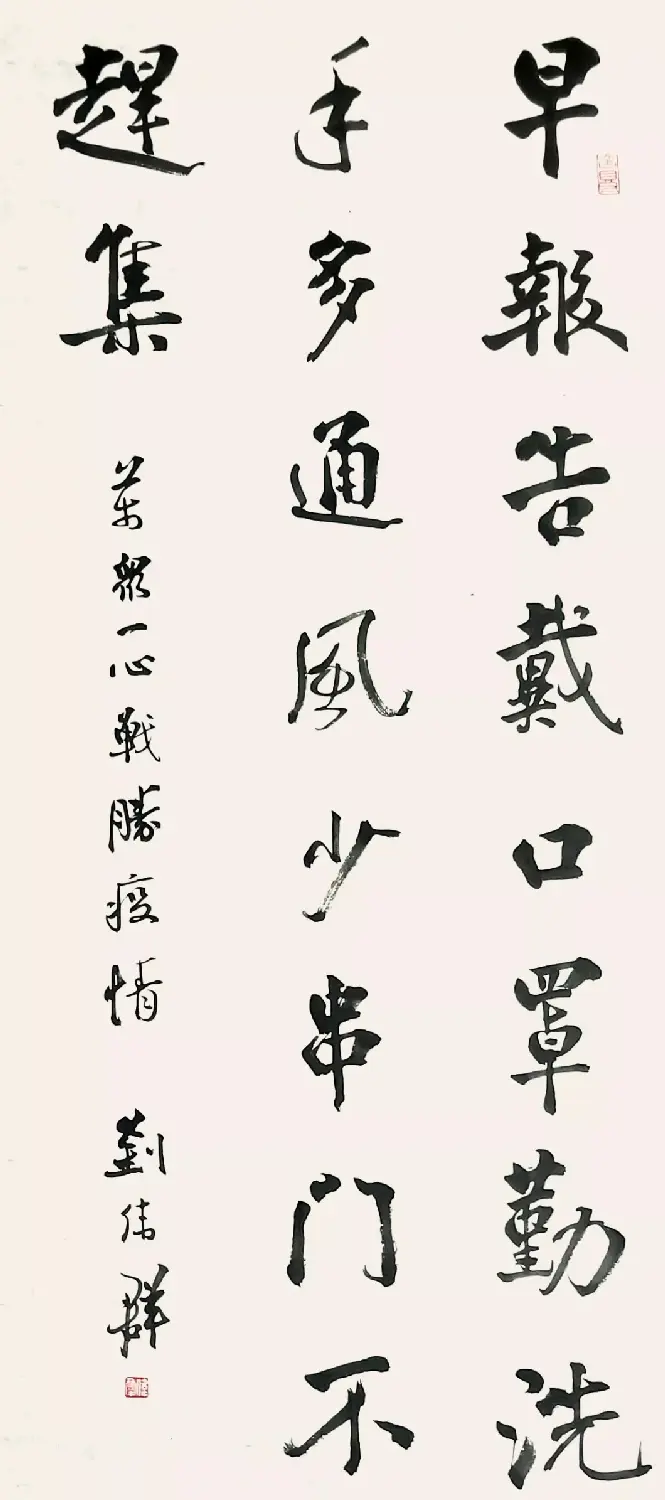 早報告戴口罩勤洗
手多通風少串门不
趕集
萬衆一心戰勝疫情 劉偉群